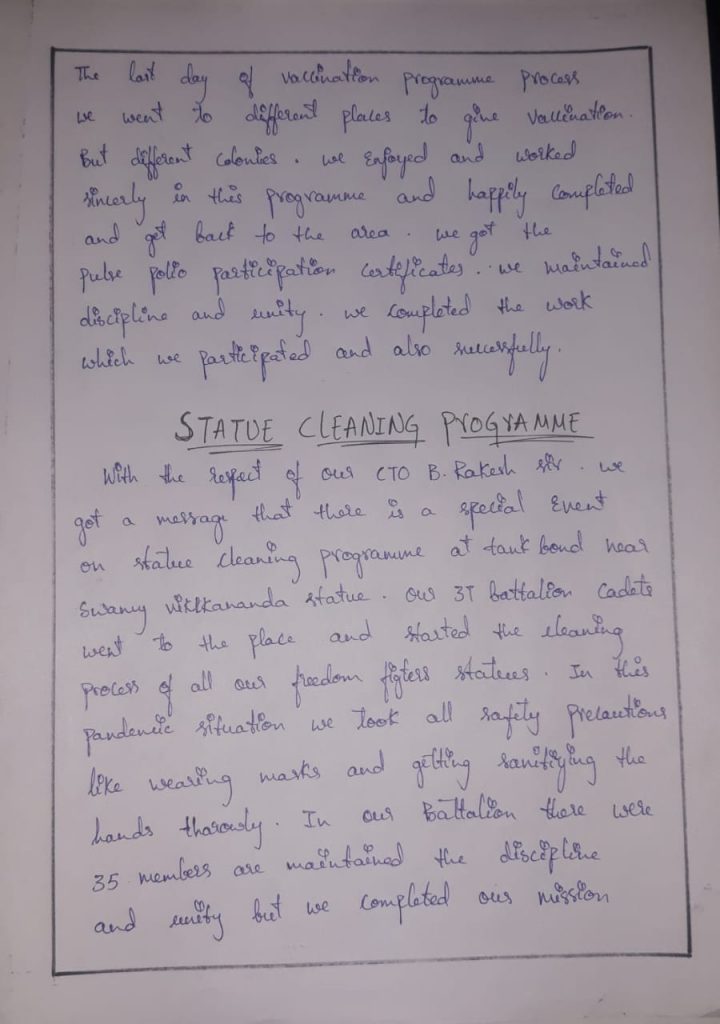 The last day of vaccination programme process
we went to different places to give vaccination.
But different colonies. we enjoyed and worked
sincerly in this programme and happily completed
and get back to the area. we got the
pulse polio participation certificates.. we maintained
discipline and unity. we completed the work
which we participated and also successfully.
STATUE CLEANING PROGRAMME
With the respect of our CTO B. Rakesh sir. we
got a message that there is a special Event
on statue cleaning programme at tank bond near
Swamy vikkananda statue. our 3T battalion cadets
went to the place and started the cleaning
process of all our freedom figters statues. In this
pandemic situation we took all safety precautions
like wearing masks and getting sanitizing the
hands tharowly. In our Battalion there were
35 members are maintained the discipline
and unity but we completed our mission